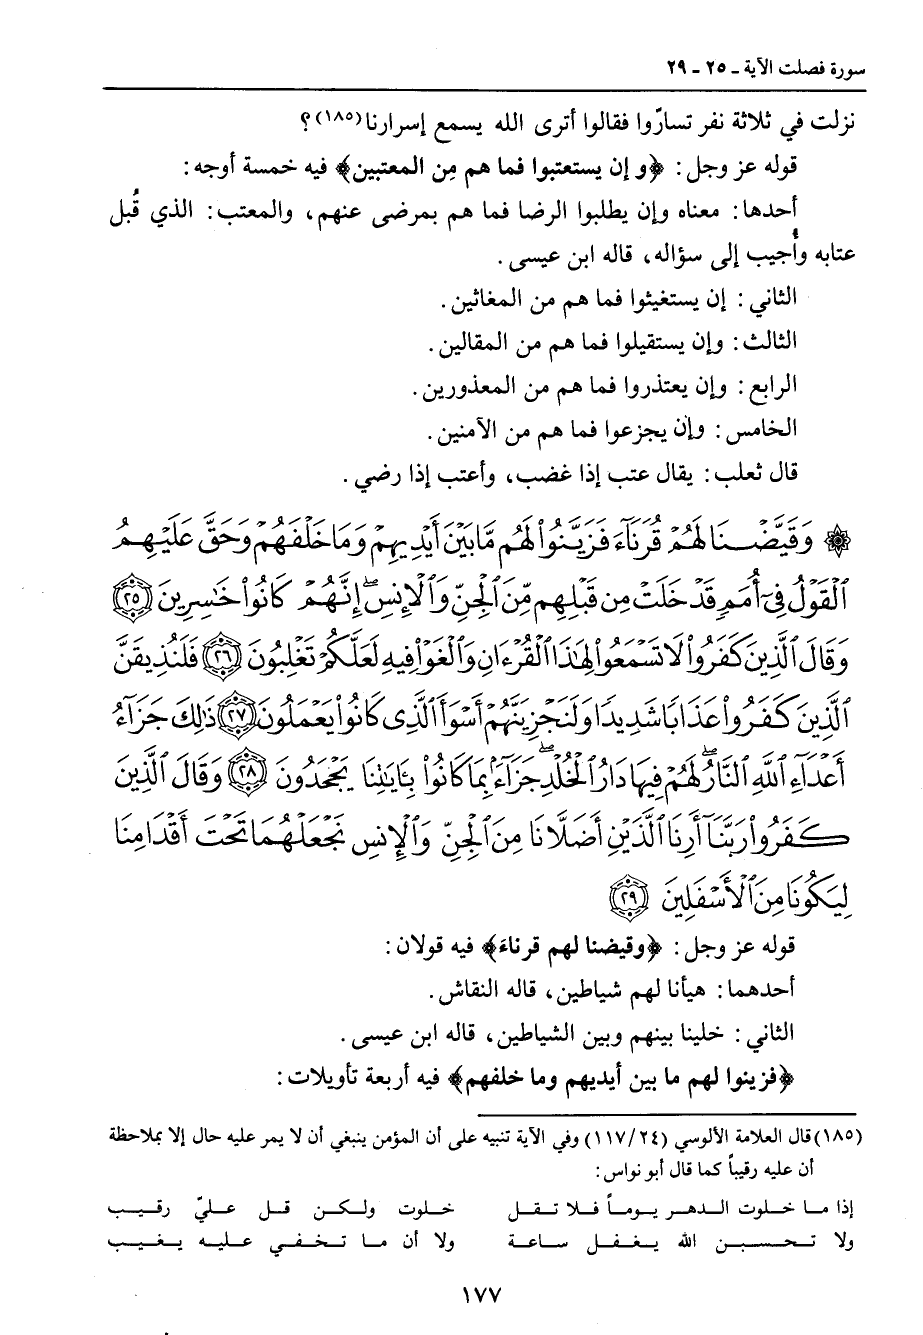 سورة فصلت الآية ـ ٢٥ ـ ٢٩
نزلت في ثلاثة نفر تسارّوا فقالوا أترى الله يسمع إسرارنا(١٨٥)؟
قوله عز وجل: ﴿وإن يستعتبوا فما هم مِن المعتبين﴾ فيه خمسة أوجه:
أحدها: معناه وإن يطلبوا الرضا فما هم بمرضى عنهم، والمعتب: الذي قُبل
عتابه وأُجيب إلى سؤاله، قاله ابن عيسى.
الثاني: إن يستغيثوا فما هم من المغاثين.
الثالث: وإن يستقيلوا فما هم من المقالين.
الرابع: وإن يعتذروا فما هم من المعذورين.
الخامس: وإن يجزعوا فما هم من الآمنين.
قال ثعلب: يقال عتب إذا غضب، وأعتب إذا رضي.
۞ وَقَيَّضْنَا لَهُمْ قُرَنَآءَ فَزَيَّنُوا۟ لَهُم مَّا بَيْنَ أَيْدِيهِمْ وَمَا خَلْفَهُمْ وَحَقَّ عَلَيْهِمُ
ٱلْقَوْلُ فِىٓ أُمَمٍ قَدْ خَلَتْ مِن قَبْلِهِم مِّنَ ٱلْجِنِّ وَٱلْإِنسِ ۖ إِنَّهُمْ كَانُوا۟ خَٰسِرِينَ ٢٥
وَقَالَ ٱلَّذِينَ كَفَرُوا۟ لَا تَسْمَعُوا۟ لِهَٰذَا ٱلْقُرْءَانِ وَٱلْغَوْا۟ فِيهِ لَعَلَّكُمْ تَغْلِبُونَ ٢٦ فَلَنُذِيقَنَّ
ٱلَّذِينَ كَفَرُوا۟ عَذَابًا شَدِيدًا وَلَنَجْزِيَنَّهُمْ أَسْوَأَ ٱلَّذِى كَانُوا۟ يَعْمَلُونَ ٢٧ ذَٰلِكَ جَزَآءُ
أَعْدَآءِ ٱللَّهِ ٱلنَّارُ ۖ لَهُمْ فِيهَا دَارُ ٱلْخُلْدِ ۖ جَزَآءًۢ بِمَا كَانُوا۟ بِـَٔايَٰتِنَا يَجْحَدُونَ ٢٨ وَقَالَ ٱلَّذِينَ
كَفَرُوا۟ رَبَّنَآ أَرِنَا ٱلَّذَيْنِ أَضَلَّانَا مِنَ ٱلْجِنِّ وَٱلْإِنسِ نَجْعَلْهُمَا تَحْتَ أَقْدَامِنَا
لِيَكُونَا مِنَ ٱلْأَسْفَلِينَ ٢٩
قوله عز وجل: ﴿وقيضنا لهم قرناءَ﴾ فيه قولان:
أحدهما: هيأنا لهم شياطين، قاله النقاش.
الثاني: خلينا بينهم وبين الشياطين، قاله ابن عيسى.
﴿فزينوا لهم ما بين أيديهم وما خلفهم﴾ فيه أربعة تأويلات:
(١٨٥) قال العلامة الألوسي (١١٧/٢٤) وفي الآية تنبيه على أن المؤمن ينبغي أن لا يمر عليه حال إلا بملاحظة
أن عليه رقيباً كما قال أبو نواس:
إذا ما خلوت الدهر يوماً فلا تقل خلوت ولكن قل عليّ رقيب
ولا تحسبن الله يغفل ساعة ولا أن ما تخفي عليه يغيب
١٧٧